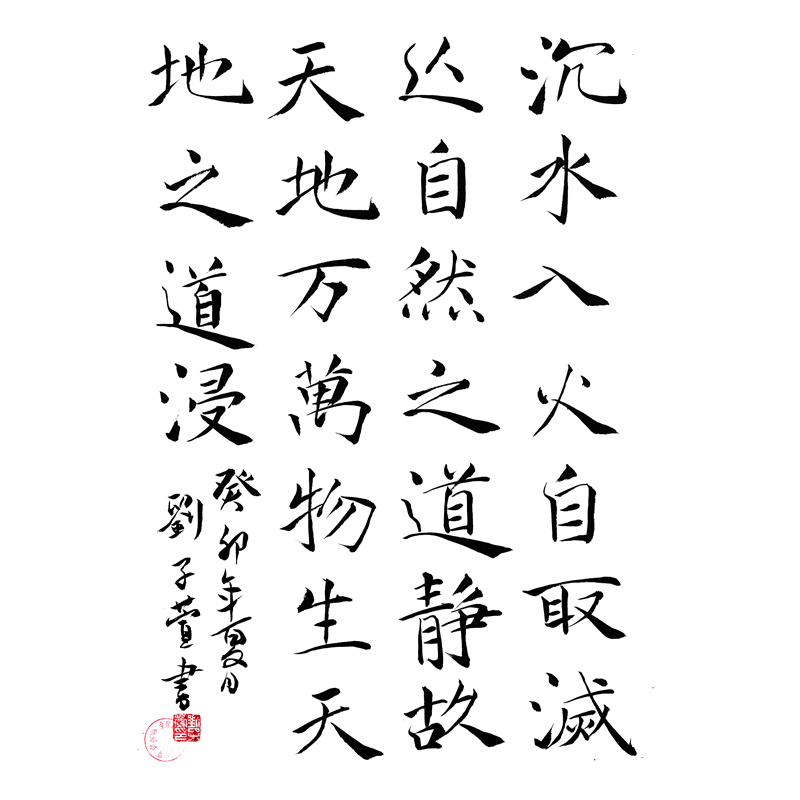 沉水入火自取滅
亾自然之道静故
天地万萬物生天
地之道浸
癸卯年夏月
劉子萱書